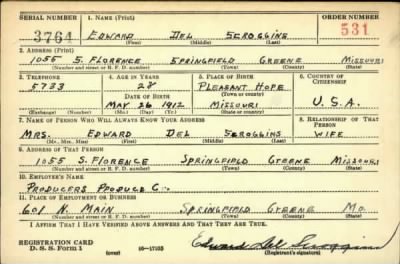 SERIAL NUMBER 1. NAME (Print) ORDER NUMBER
3764 EDWARD DEL SCROGGINS 531
(First) (Middle) (Last)
2. ADDRESS (Print)
1055 S. FLORENCE SPRINGFIELD GREENE MISSOURI
(Number and street or R. F. D. number) (Town) (County) (State)
3. TELEPHONE 4. AGE IN YEARS 5. PLACE OF BIRTH 6. COUNTRY OF CITIZENSHIP
5733 28 PLEASANT HOPE
DATE OF BIRTH (Town or county)
MAY 26 1912 MISSOURI U.S.A.
(Exchange) (Number) (Mo.) (Day) (Yr.) (State or country)
7. NAME OF PERSON WHO WILL ALWAYS KNOW YOUR ADDRESS 8. RELATIONSHIP OF THAT PERSON
MRS. EDWARD DEL SCROGGINS WIFE
(Mr., Mrs., Miss) (First) (Middle) (Last)
9. ADDRESS OF THAT PERSON
1055 S. FLORENCE SPRINGFIELD GREENE MISSOURI
(Number and street or R. F. D. number) (Town) (County) (State)
10. EMPLOYER'S NAME
PRODUCERS PRODUCE CO.
11. PLACE OF EMPLOYMENT OR BUSINESS
601 N. MAIN SPRINGFIELD GREENE MO.
(Number and street or R. F. D. number) (Town) (County) (State)
I AFFIRM THAT I HAVE VERIFIED ABOVE ANSWERS AND THAT THEY ARE TRUE.
REGISTRATION CARD
D. S. S. Form 1 (over) 16—17105 Edward Del Scroggins
(Registrant's signature)